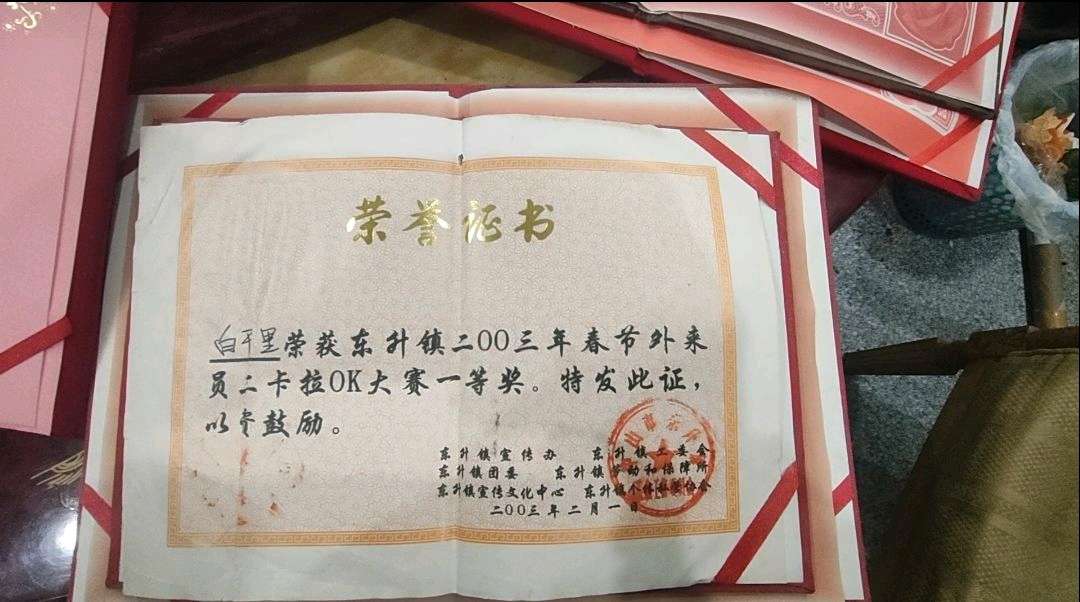 荣誉证书
白平里荣获东升镇二00三年春节外来
员工卡拉OK大赛一等奖。特发此证，
以资鼓励。
东升镇宣传办 东升镇工委会
东升镇团委 东升镇劳动和保障所
东升镇宣传文化中心 东升镇个体私营协会
二00三年二月一日